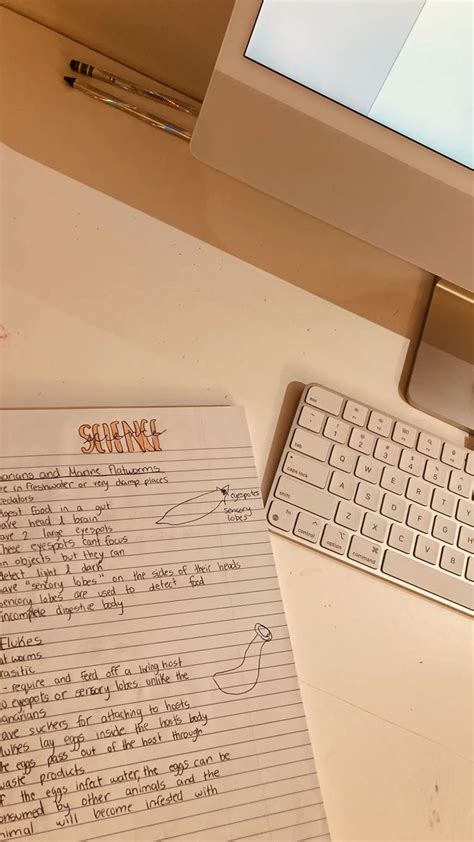 SCIENCE
science
narians and Marine Flatworms
re in freshwater or very damp places
redators
digest food in a gut
ave head & brain
ave 2 large eyespots
hese eyespots cant focus
on objects but they can
detect light & dark
ave "sensory lobes" on the sides of their heads
sensory lobes are used to detect food
incomplete digestive body
eyespots
sensory
lobes
Flukes
at worms
rasitic
- require and feed off a living host
no eyespots or sensory lobes unlike the
anarians
ave suckers for attaching to hosts
flukes lay eggs inside the hosts body
he eggs pass out of the host through
waste products
if the eggs infect water, the eggs can be
onsumed by other animals and the
nimal will become infested with
esc
tab
caps lock
shift
fn
control
option
command
1
2
3
4
Q
W
E
R
A
S
D
F
Z
X
C